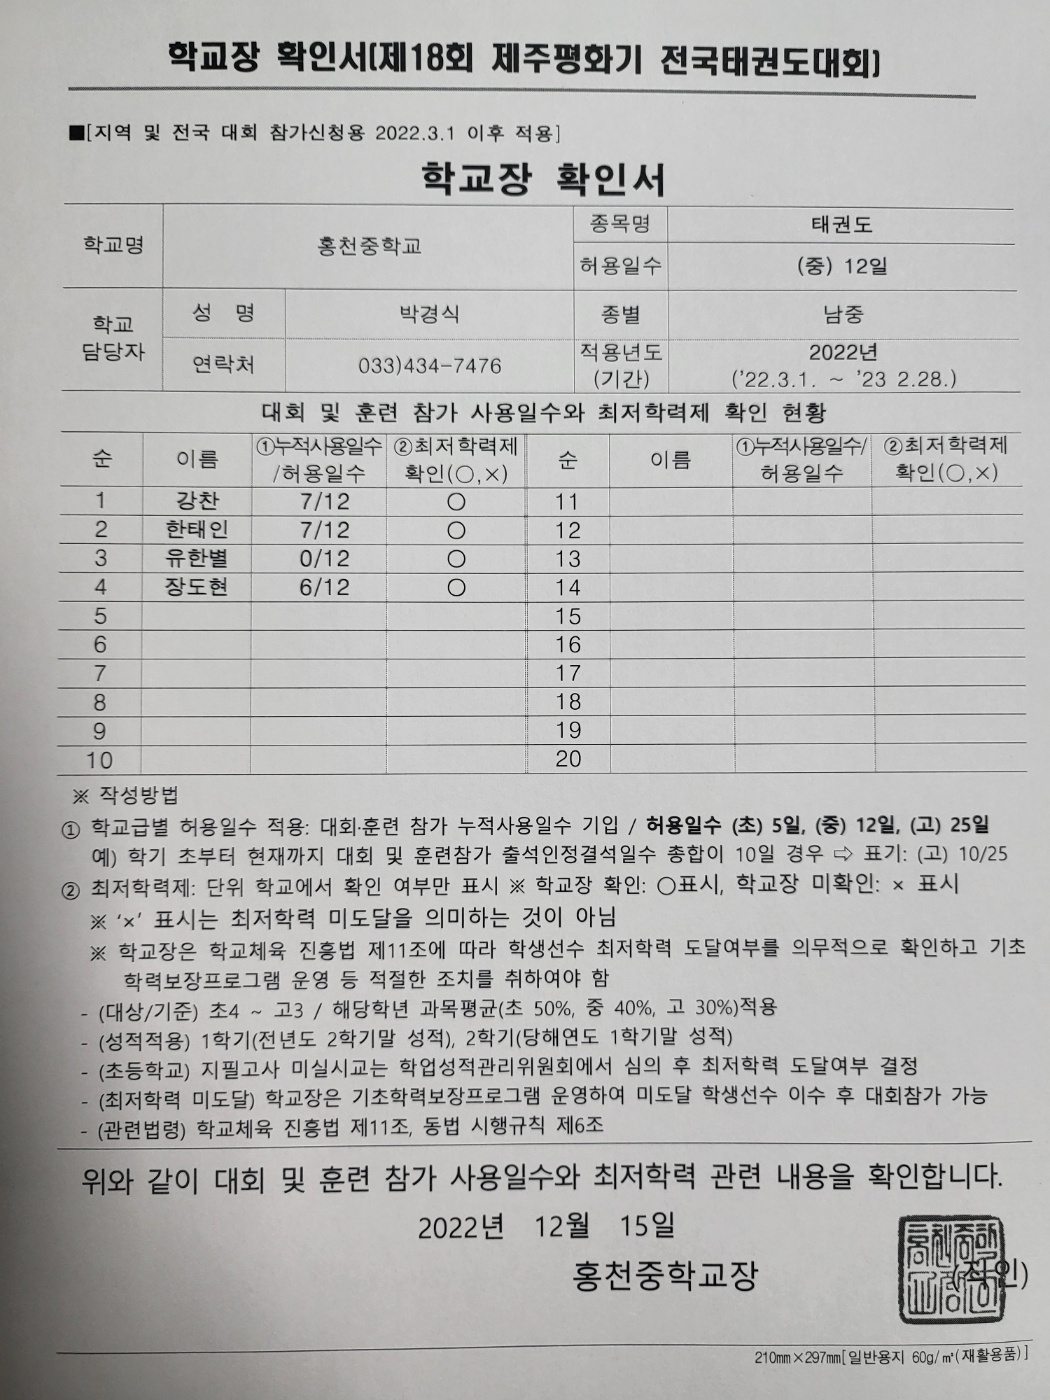 학교장 확인서(제18회 제주평화기 전국태권도대회)
■[지역 및 전국 대회 참가신청용 2022.3.1 이후 적용]
학교장 확인서
학교명 홍천중학교 종목명 태권도
허용일수 (중) 12일
학교 담당자 성 명 박경식 종별 남중
연락처 033)434-7476 적용년도 (기간) 2022년 ('22.3.1. ~ '23 2.28.)
대회 및 훈련 참가 사용일수와 최저학력제 확인 현황
순 이름 ①누적사용일수/허용일수 ②최저학력제 확인(○,×) 순 이름 ①누적사용일수/허용일수 ②최저학력제 확인(○,×)
1 강찬 7/12 ○ 11
2 한태인 7/12 ○ 12
3 유한별 0/12 ○ 13
4 장도현 6/12 ○ 14
5 15
6 16
7 17
8 18
9 19
10 20
※ 작성방법
① 학교급별 허용일수 적용: 대회·훈련 참가 누적사용일수 기입 / 허용일수 (초) 5일, (중) 12일, (고) 25일
예) 학기 초부터 현재까지 대회 및 훈련참가 출석인정결석일수 총합이 10일 경우 ⇨ 표기: (고) 10/25
② 최저학력제: 단위 학교에서 확인 여부만 표시 ※ 학교장 확인: ○표시, 학교장 미확인: × 표시
※ '×' 표시는 최저학력 미도달을 의미하는 것이 아님
※ 학교장은 학교체육 진흥법 제11조에 따라 학생선수 최저학력 도달여부를 의무적으로 확인하고 기초
학력보장프로그램 운영 등 적절한 조치를 취하여야 함
- (대상/기준) 초4 ~ 고3 / 해당학년 과목평균(초 50%, 중 40%, 고 30%)적용
- (성적적용) 1학기(전년도 2학기말 성적), 2학기(당해연도 1학기말 성적)
- (초등학교) 지필고사 미실시교는 학업성적관리위원회에서 심의 후 최저학력 도달여부 결정
- (최저학력 미도달) 학교장은 기초학력보장프로그램 운영하여 미도달 학생선수 이수 후 대회참가 가능
- (관련법령) 학교체육 진흥법 제11조, 동법 시행규칙 제6조
위와 같이 대회 및 훈련 참가 사용일수와 최저학력 관련 내용을 확인합니다.
2022년 12월 15일
홍천중학교장 (직인)
210㎜×297㎜[일반용지 60g/㎡(재활용품)]